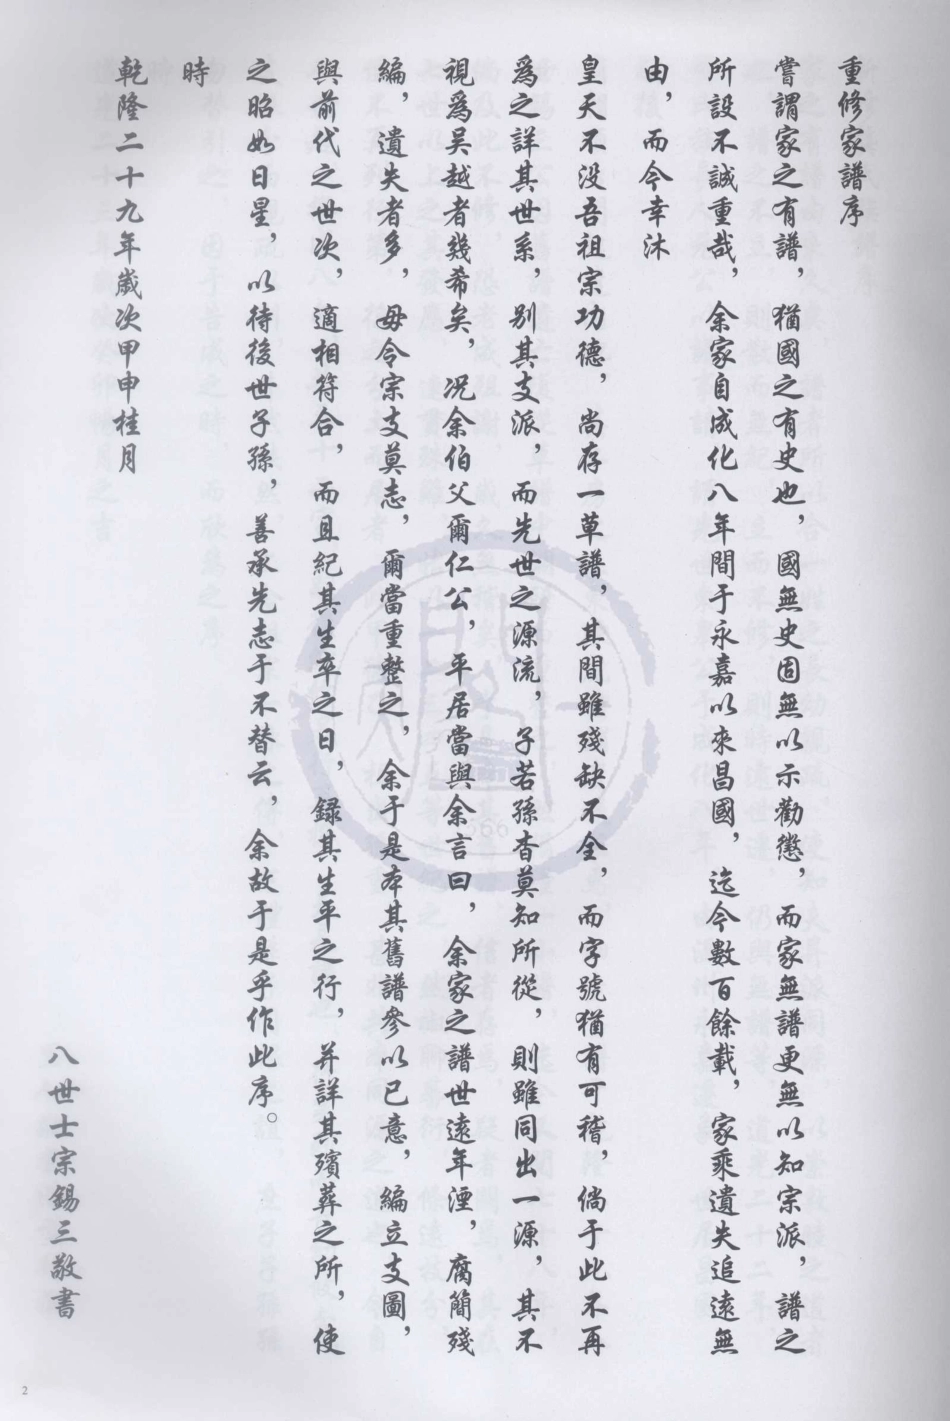 重修家譜序
嘗謂家之有譜，猶國之有史也，國無史固無以示勸懲，而家無譜更無以知宗派，譜之
所設不誠重哉，余家自成化八年間于永嘉以來昌國，迄今數百餘載，家乘遺失追遠無
由，而今幸沐
皇天不没吾祖宗功德，尚存一草譜，其間雖殘缺不全，而字號猶有可稽，倘于此不再
爲之詳其世系，别其支派，而先世之源流，子若孫杳莫知所從，則雖同出一源，其不
視爲吴越者幾希矣，况余伯父爾仁公，平居當與余言曰，余家之譜世遠年湮，腐簡殘
編，遺失者多，毋令宗支莫志，爾當重整之，余于是本其舊譜參以已意，編立支圖，
與前代之世次，適相符合，而且紀其生卒之日，録其生平之行，并詳其殯葬之所，使
之昭如日星，以待後世子孫，善承先志于不替云，余故于是乎作此序。
時
乾隆二十九年歲次甲申桂月
八世士宗錫三敬書
2